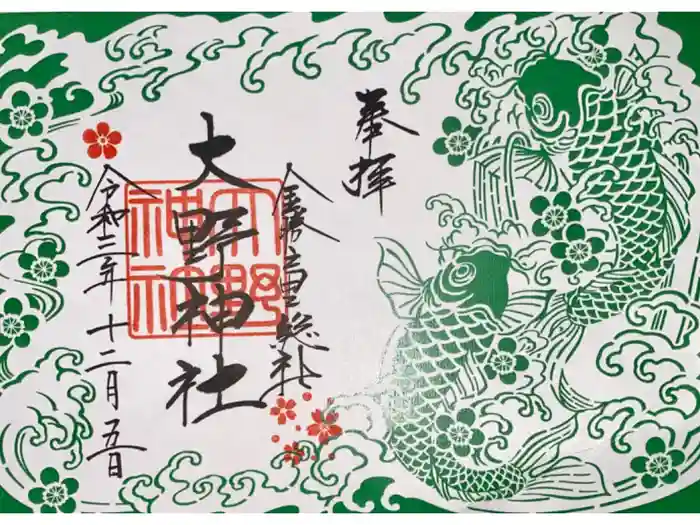 奉拝
金勝里総社
大野神社
大野神社
令和三年十二月五日